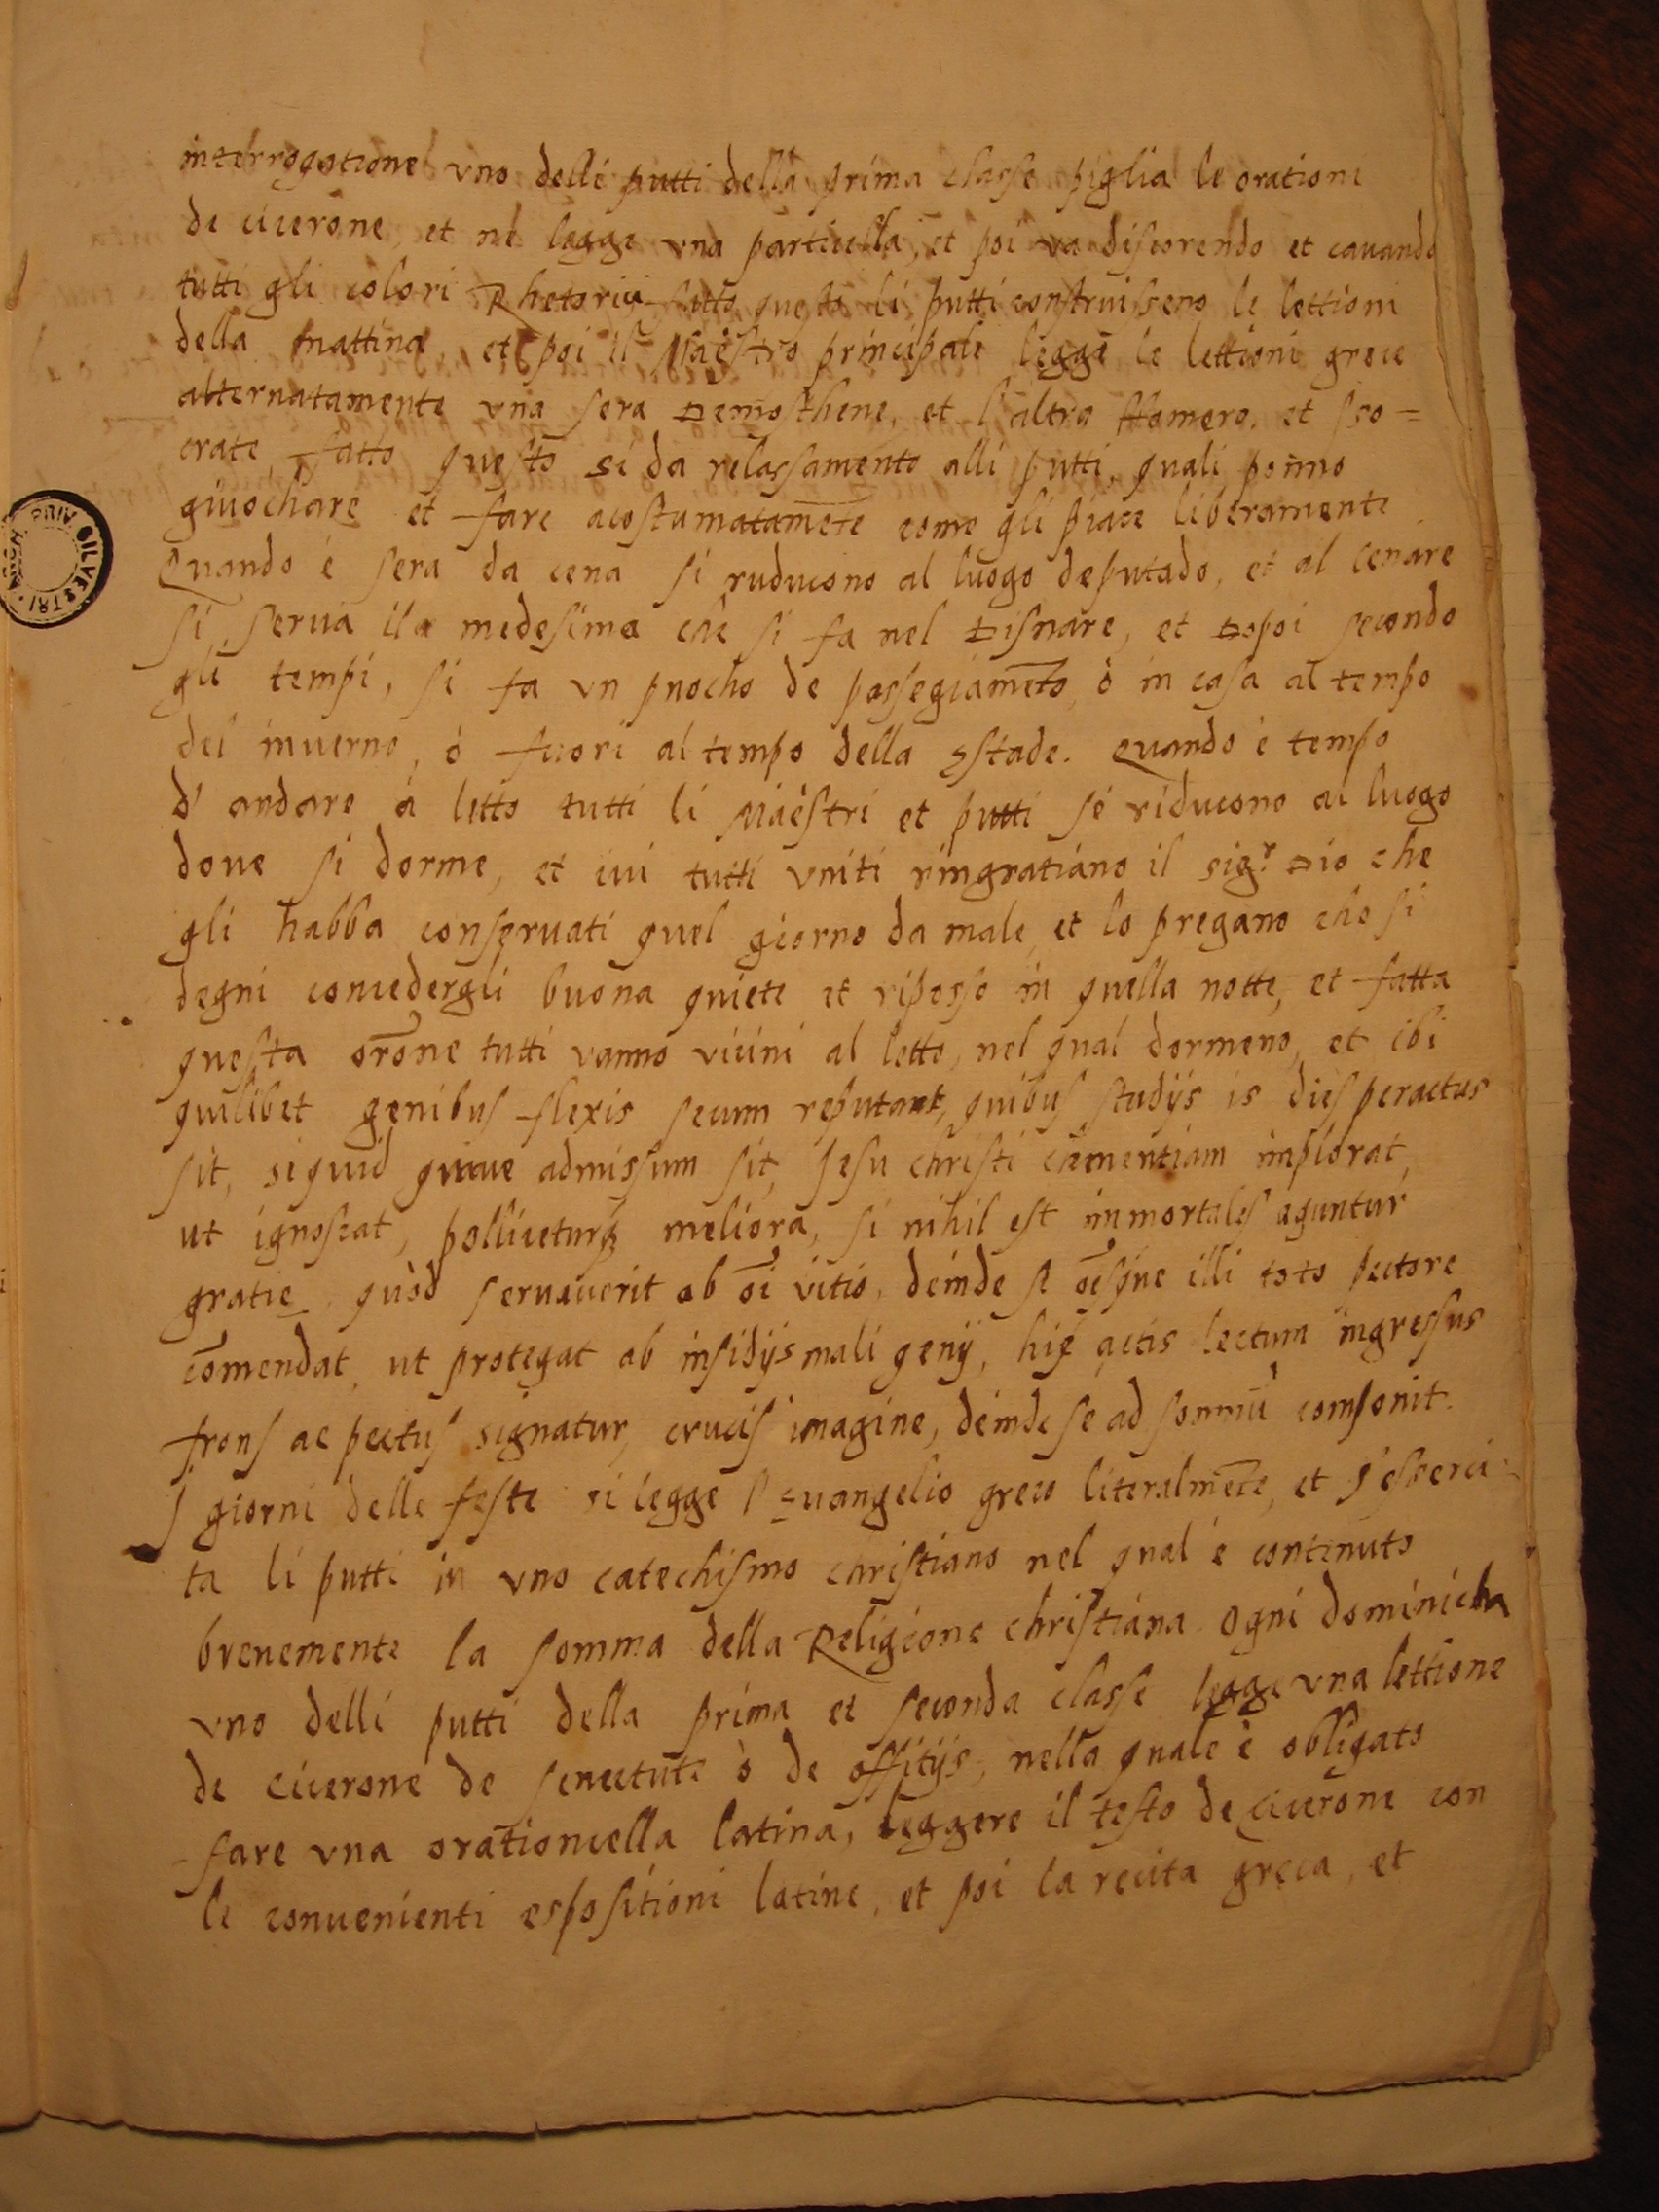 interrogatione uno delli putti della prima classe piglia le orationi
de cicerone, et ne legge una particella, et poi va discorendo et cavando
tutti gli colori Rhetorici fatto questo li putti construisseno le lettioni
della mattina, et poi il Maèstro principale legge le lettioni grece
alternatamente una sera Demosthene, et l'altra Homero. et Iso=
crate, fatto questo si da relassamento alli putti, quali ponno
giuochare et fare acostumatamēte come gli piace liberamente
Quando è sera da cena si ruducono al luogo deputado, et al cenare
si serva il medesima che si fa nel Disnare, et Dopoi secondo
gli tempi, si fa un puocho de passegiamēto, ò in casa al tempo
del inverno, ò fuori al tempo della Estade. Quando è tempo
d'andare à letto tutti li Maèstri et putti se riducono al luogo
dove si dorme, et ivi tutti uniti ringratiano il sig.r Dio che
gli habba conservati quel giorno da male, et lo pregano che si
degni concedergli buona quiete et riposso in quella notte, et fatta
questa orōne tutti vanno vicini al letto, nel qual dormeno, et ibi
quilibet genibus flexis secum reputant, quibus studijs is dies peractus
sit, siquid grave admissum sit, Jesu christi clementiam implorat,
ut ignoscat, polliceturq; meliora, si nihil est immortales aguntur
gratie, quòd servaverit ab oī vitio, deinde se oēsque illi toto pectore
cōmendat, ut protegat ab insidijs mali genij, his actis lectum ingressus
frons ac pectus signatur, crucis imagine, deinde se ad somnū componit.
I giorni delle feste si legge l'Evangelio greco literalmēte, et s'esserci=
ta li putti in uno catechismo christiano nel qual è contenuto
brevemente la somma della Religione christiana. Ogni dominicha
uno delli putti della prima et seconda classe legge una lettione
de Cicerone de senectute ò de offitijs, nella quale è obligato
fare una orationcella latina, leggere il testo de Cicerone con
le convenienti espositioni latine, et poi la recita greca, et